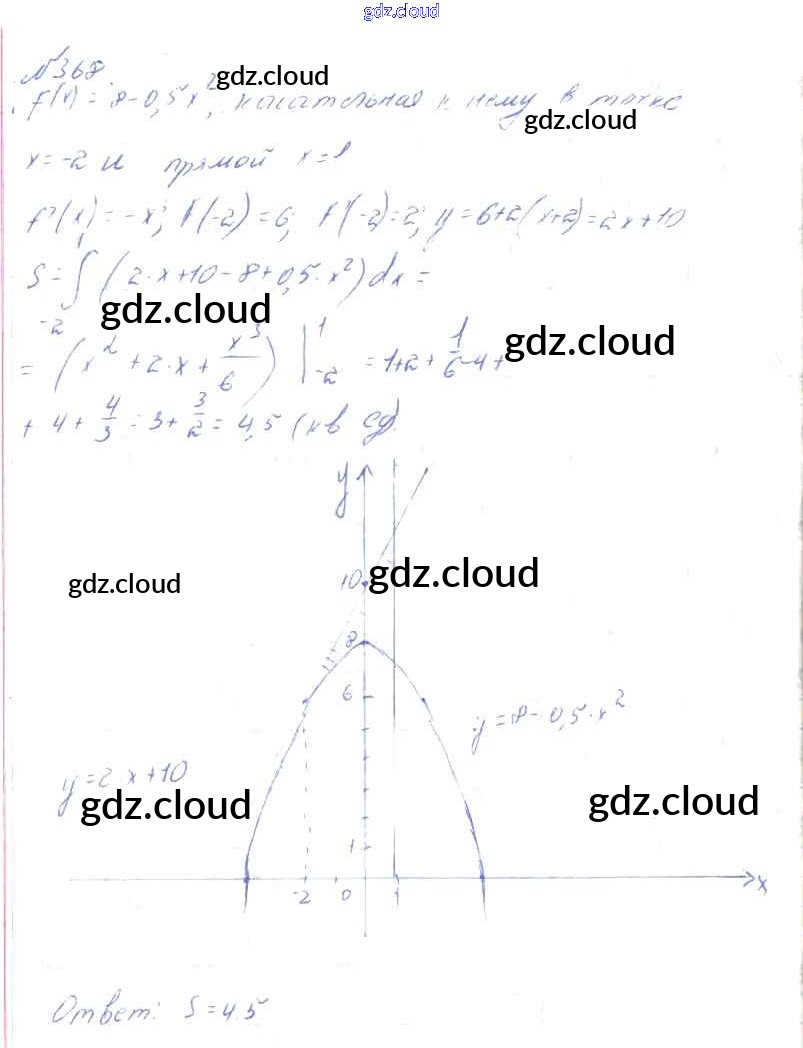 gdz.cloud
№368 gdz.cloud
f(x) = 8-0,5x², касательная к нему в точке
gdz.cloud
x = -2 и прямой x = 1
f'(x) = -x; f(-2) = 6; f'(-2) = 2; y = 6+2(x+2) = 2x+10
S = ∫₋₂¹ (2·x+10-8+0,5·x²)dx =
gdz.cloud
gdz.cloud
= (x² + 2·x + x³/6) |₋₂¹ = 1+2+1/6-4+
+ 4 + 4/3 = 3 + 3/2 = 4,5 (кв ед).
y
10 gdz.cloud
gdz.cloud
8
6
y = 8-0,5·x²
y = 2·x+10
gdz.cloud
gdz.cloud
1
-2 0 1 x
Ответ: S = 4.5